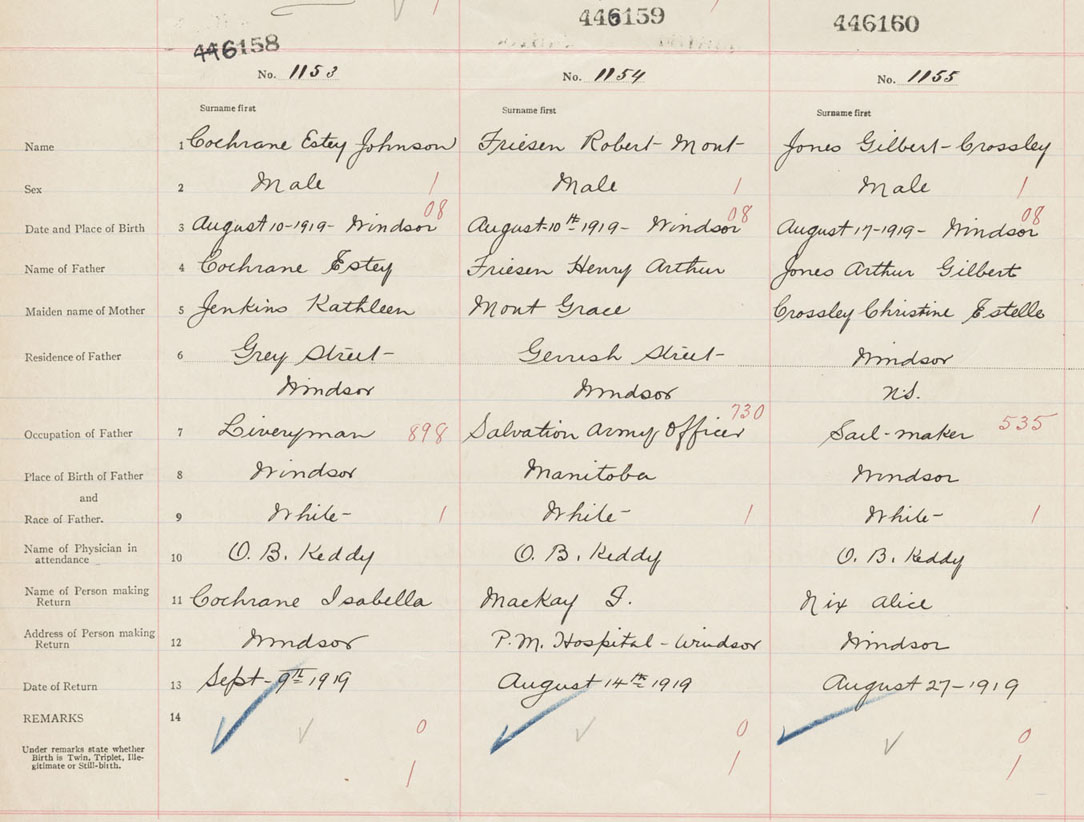 446158 446159 446160
No. 1153 No. 1154 No. 1155
Surname first Surname first Surname first
Name 1 Cochrane Estey Johnson Friesen Robert- Mont- Jones Gilbert- Crossley
Sex 2 Male 1 Male 1 Male 1
08 08 08
Date and Place of Birth 3 August 10-1919- Windsor August 10th 1919- Windsor August 17-1919- Windsor
Name of Father 4 Cochrane Estey Friesen Henry Arthur Jones Arthur Gilbert
Maiden name of Mother 5 Jenkins Kathleen Mont Grace Crossley Christine Estelle
Residence of Father 6 Grey Street- Gerrish Street- Windsor
Windsor Windsor N.S.
Occupation of Father 7 Liveryman 898 Salvation Army Officer 730 Sail-maker 535
Place of Birth of Father 8 Windsor Manitoba Windsor
and
Race of Father. 9 White- 1 White- 1 White- 1
Name of Physician in
attendance 10 O. B. Keddy O. B. Keddy O. B. Keddy
Name of Person making
Return 11 Cochrane Isabella Mackay I. Nix Alice
Address of Person making
Return 12 Windsor P.M. Hospital - Windsor Windsor
Date of Return 13 Sept- 9th 1919 August 14th 1919 August 27-1919
REMARKS 14
0 0 0
Under remarks state whether
Birth is Twin, Triplet, Ille-
gitimate or Still-birth.
1 1 1